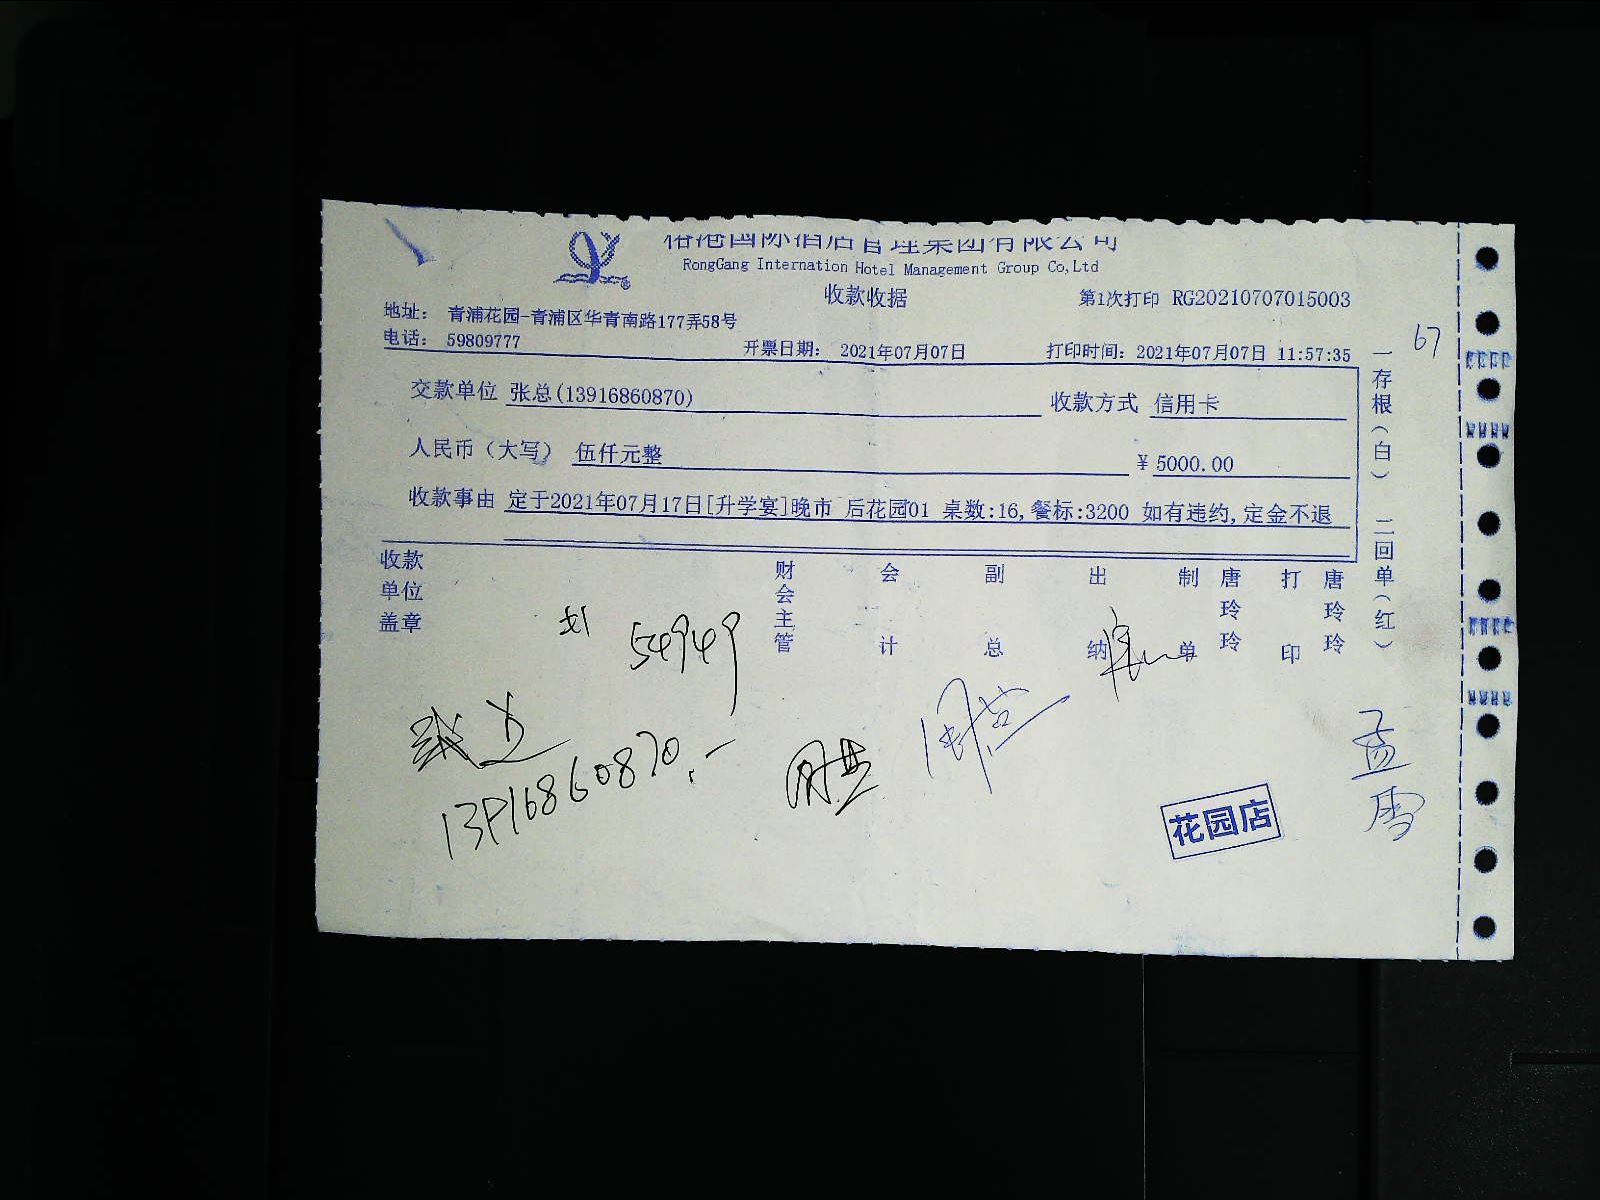 国际酒店管理集团有限公司
RongGang Internation Hotel Management Group Co,Ltd
收款收据
第1次打印 RG20210707015003
地址: 青浦花园-青浦区华青南路177弄58号
电话: 59809777
开票日期: 2021年07月07日
打印时间: 2021年07月07日 11:57:35
67
交款单位 张总(13916860870)
收款方式 信用卡
人民币(大写) 伍仟元整
¥ 5000.00
收款事由 定于2021年07月17日[升学宴]晚市 后花园01 桌数:16,餐标:3200 如有违约,定金不退
一存根(白) 二回单(红)
收款单位盖章
财会主管
会计
副总
出纳
制单
唐玲玲
打印
唐玲玲
54949
13916860870
孟雪
花园店